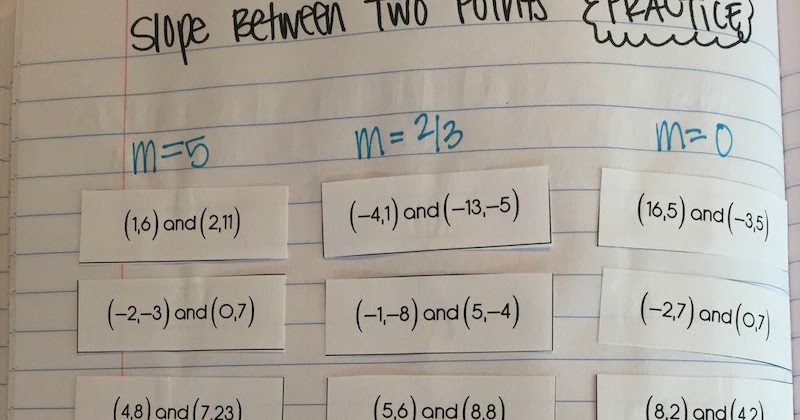 Slope Between Two Points {PRACTICE}
m=5 m=2/3 m=0
(1,6) and (2,11) (−4,1) and (−13,−5) (16,5) and (−3,5)
(−2,−3) and (0,7) (−1,−8) and (5,−4) (−2,7) and (0,7)
(4,8) and (7,23) (5,6) and (8,8) (8,2) and (4,2)